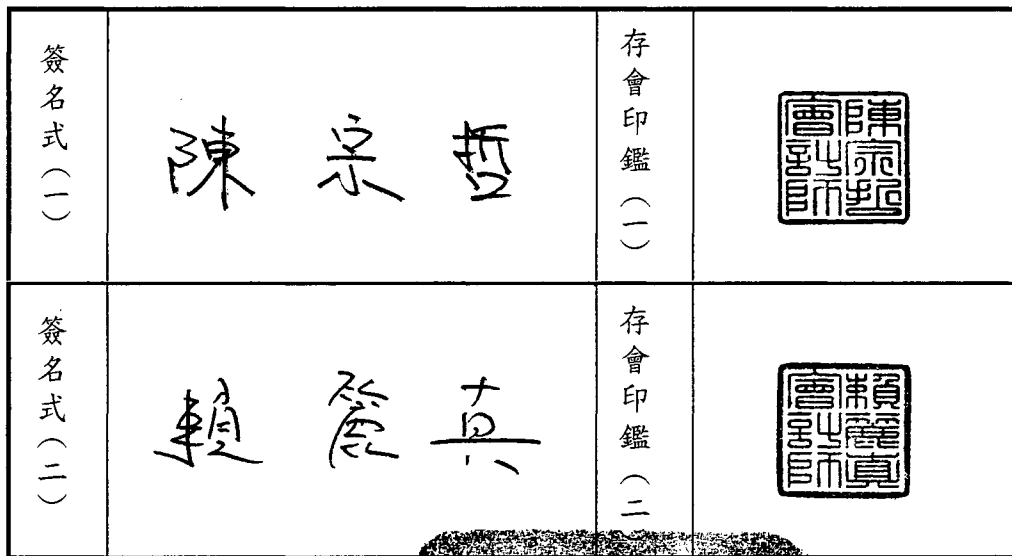 簽名式（一）
陳宗哲
存會印鑑（一）
陳宗哲
會計師
簽名式（二）
賴麗真
存會印鑑（二
賴麗真
會計師